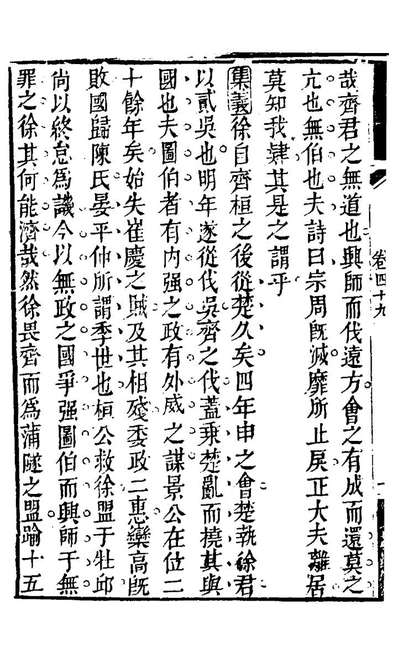 卷四十九
哉齊君之無道也興師而伐遠方會之有成而還莫之
亢也無伯也夫詩曰宗周既滅靡所止戾正大夫離居
莫知我肄其是之謂乎
集義徐自齊桓之後從楚久矣四年申之會楚執徐君
以貳吳也明年遂從伐吳齊之伐蓋乗楚亂而撓其與
國也夫圖伯者有内强之政有外威之謀景公在位二
十餘年矣始失崔慶之賊及其相殘委政二惠欒高既
敗國歸陳氏晏平仲所謂季世也桓公救徐盟于牡邱
尚以終怠為譏今以無政之國爭强圖伯而興師于無
罪之徐其何能濟哉然徐畏齊而為蒲隧之盟踰十五